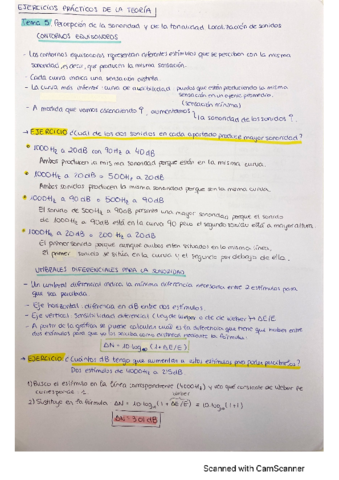 EJERCICIOS PRÁCTICOS DE LA TEORÍA
Tema 5: Percepción de la sonoridad y de la tonalidad. Localización de sonidos
CONTORNOS EQUISONOROS
- Los contornos equisonoros, representan diferentes estímulos que se perciben con la misma
sonoridad, es decir, que producen la misma sensación.
- Cada curva indica una sensación distinta
- La curva más inferior: curva de audibilidad
puntos que están produciendo la misma
sensación en un oyente promedio.
(sensación mínima)
- A medida que vamos ascendiendo ↑, aumentamos
la sonoridad de los sonidos ↑.
→ EJERCICIO ¿Cuál de los dos sonidos en cada apartado produce mayor sonoridad?
1000 Hz a 20 dB con 90 Hz a 40 dB
Ambos producen la misma sonoridad porque están en la misma curva.
1000 Hz a 70 dB = 500 Hz a 70 dB
Ambos sonidos producen la misma sonoridad porque están en la misma curva.
1000 Hz a 90 dB = 500 Hz a 90 dB
El sonido de 500 Hz a 90 dB presenta una mayor sonoridad porque el sonido
de 1000 Hz a 90 dB está en la curva 90 pero el segundo
1000 Hz a 20 dB = 200 Hz a 20 dB
El primer sonido porque aunque ambos estén situados en la misma línea,
el primer sonido se sitúa en la curva y el segundo por debajo de ella.
UMBRALES DIFERENCIALES PARA LA SONORIDAD
- Un umbral diferencial indica la mínima diferencia necesaria entre 2 estímulos para
que sea percibida
- Eje horizontal: diferencia en dB entre dos estímulos.
- Eje vertical: sensibilidad diferencial (ley de Weber o cte de weber) → ΔE/E
- A partir de la gráfica se puede calcular cuál es la diferencia que tiene que haber entre
dos estímulos para que
mediante la fórmula:
ΔN = 10 · log10 (1 + ΔE/E)
→ EJERCICIO ¿Cuántos dB tengo que aumentar a estos estímulos para poder percibirlos?
Dos estímulos de 4000 Hz a 25 dB
1) Busco el estímulo en la línea correspondiente (4000 Hz) y veo qué constante de Weber le
corresponde: 1.
weber
2) Sustituyo en la fórmula: ΔN = 10 · log10 (1 + ΔE/E) = 10 · log10 (1+1)
ΔN = 3'01 dB
Scanned with CamScanner